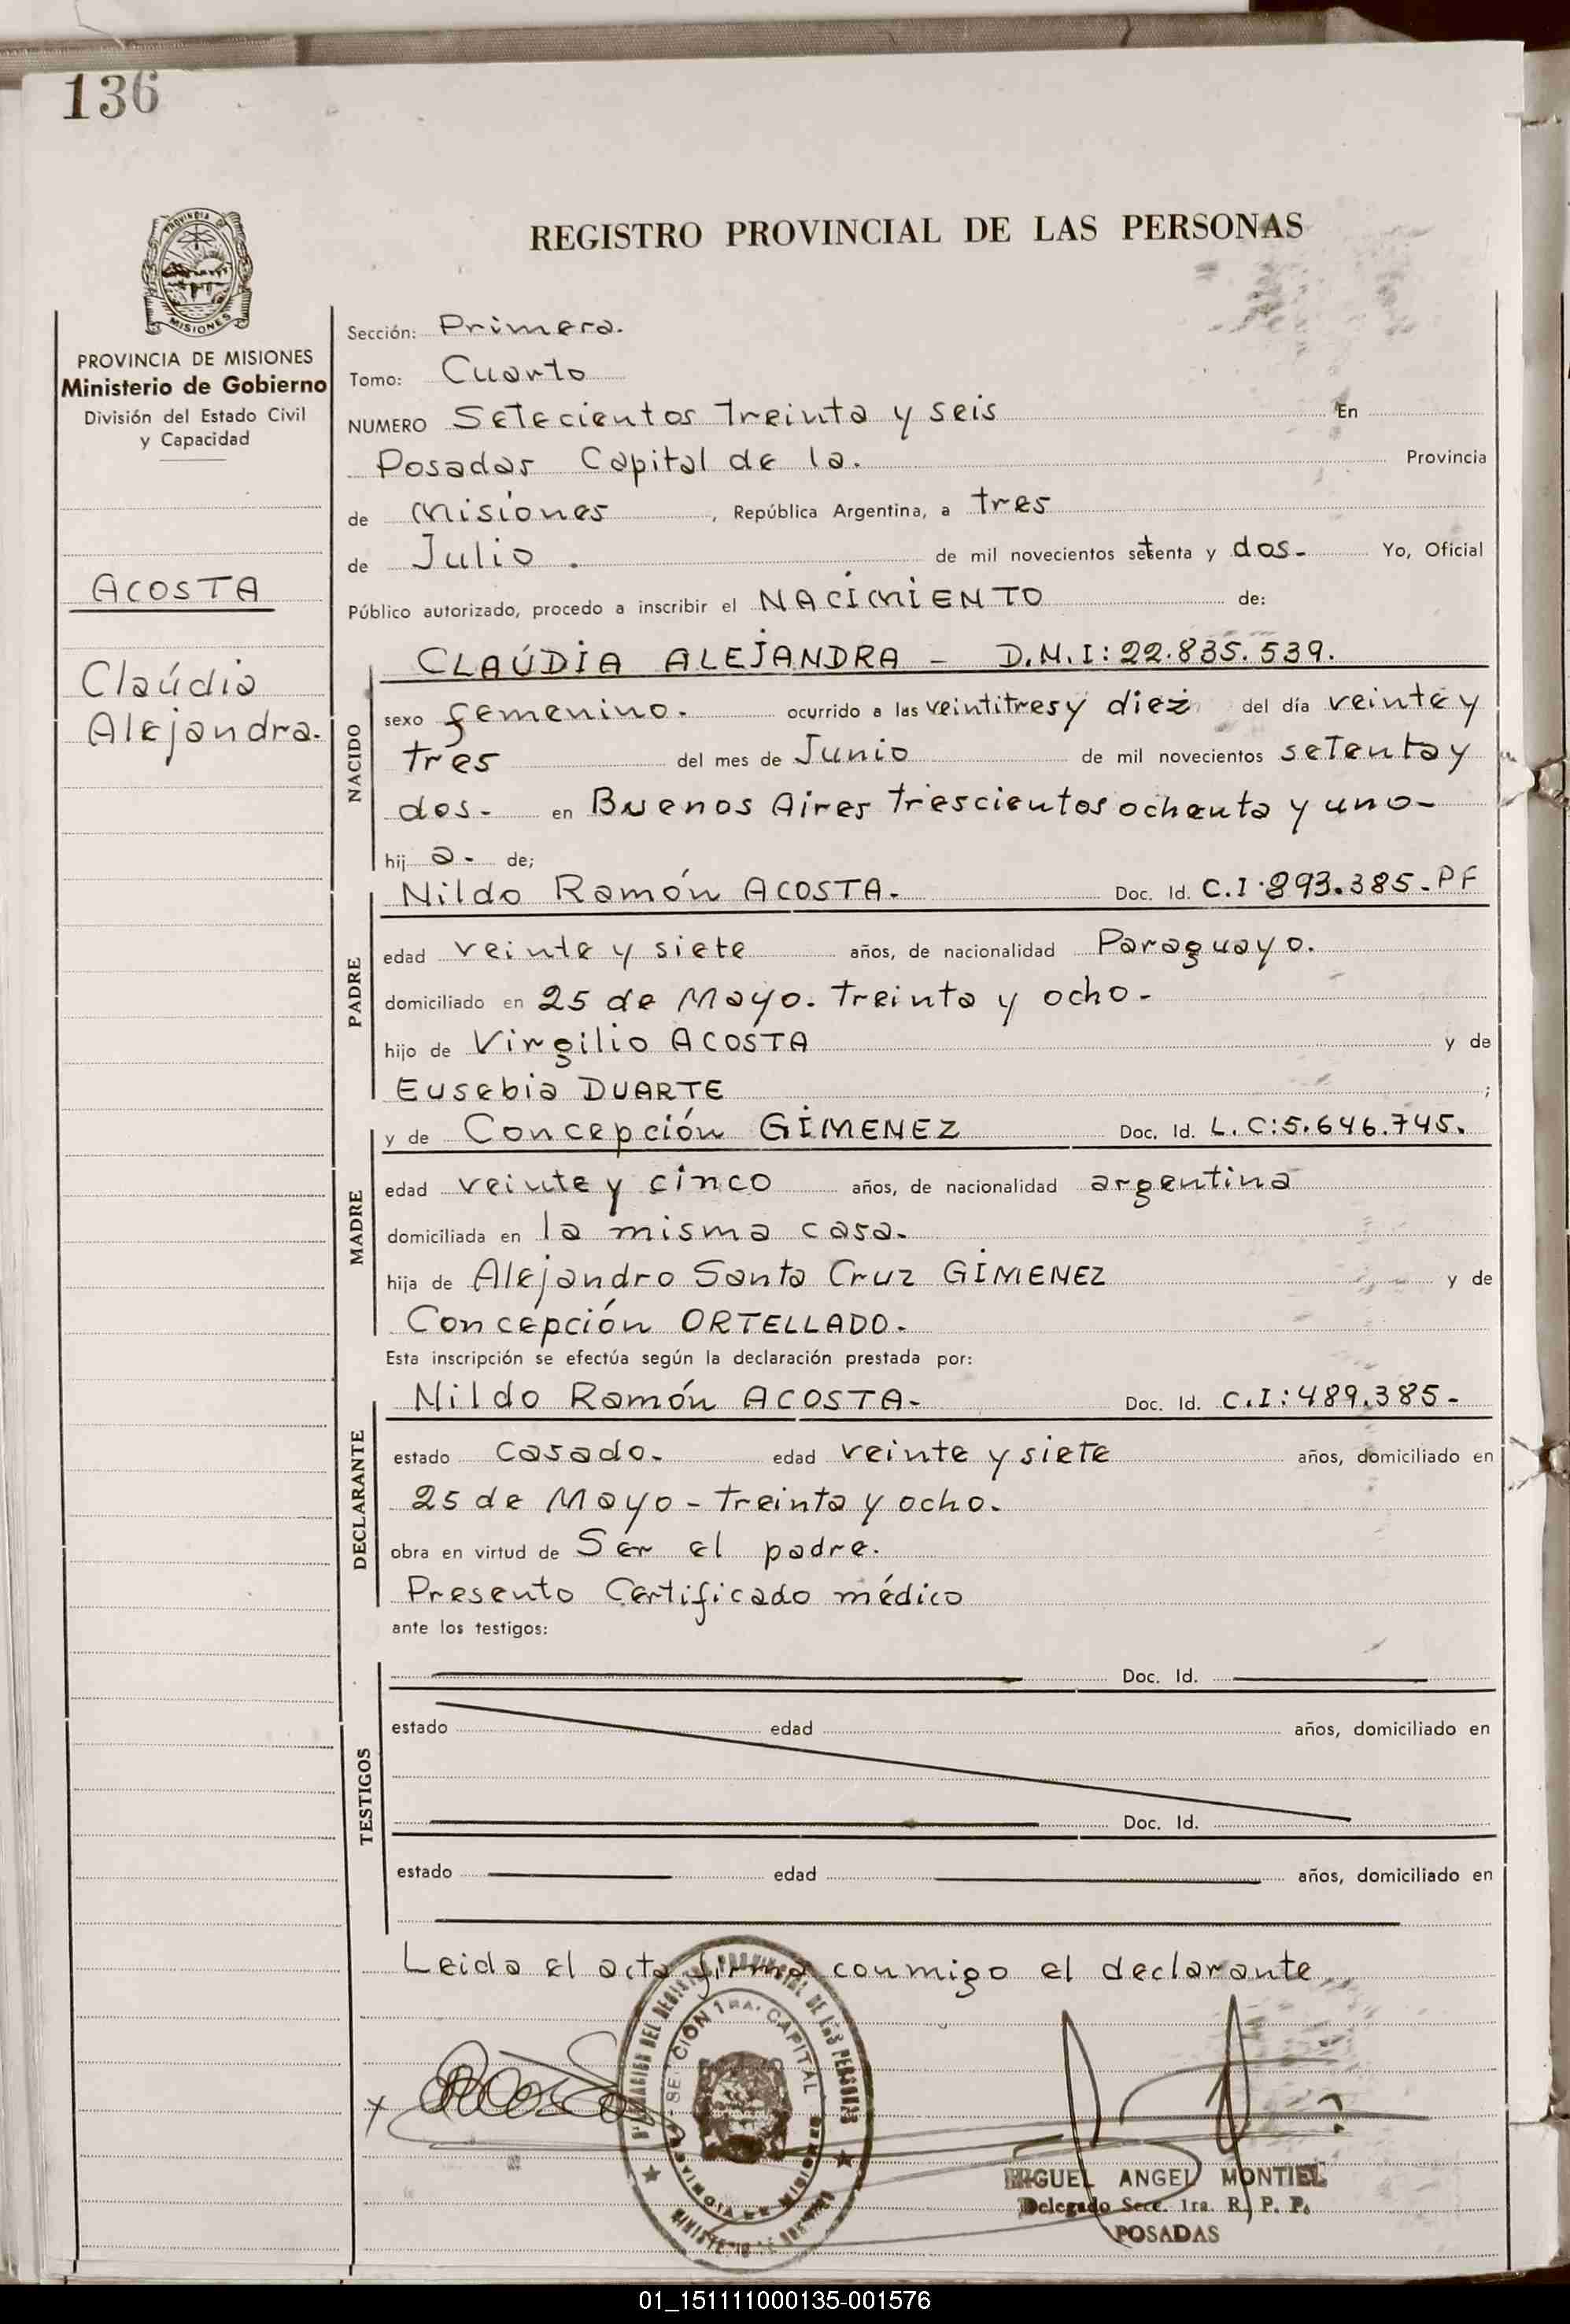 136
REGISTRO PROVINCIAL DE LAS PERSONAS
PROVINCIA
MISIONES
PROVINCIA DE MISIONES
Ministerio de Gobierno
División del Estado Civil
y Capacidad
ACOSTA
Claúdia
Alejandra.
Sección: Primera.
Tomo: Cuarto
NUMERO Setecientos Treinta y seis En
Posadas Capital de la. Provincia
de Misiones, República Argentina, a tres
de Julio. de mil novecientos setenta y dos- Yo, Oficial
Público autorizado, procedo a inscribir el NACIMIENTO de:
NACIDO
CLAÚDIA ALEJANDRA - D.N.I: 22.835.539.
sexo femenino. ocurrido a las veintitres y diez del día veinte y
tres del mes de Junio de mil novecientos setenta y
dos- en Buenos Aires trescientos ochenta y uno-
hij a- de;
PADRE
Nildo Ramón ACOSTA- Doc. Id. C.I. 893.385-PF
edad veinte y siete años, de nacionalidad Paraguayo.
domiciliado en 25 de Mayo. treinta y ocho-
hijo de Virgilio ACOSTA y de
Eusebia DUARTE ;
MADRE
y de Concepción GIMENEZ Doc. Id. L.C: 5.646.745.
edad veinte y cinco años, de nacionalidad argentina
domiciliada en la misma casa.
hija de Alejandro Santa Cruz GIMENEZ y de
Concepción ORTELLADO-
Esta inscripción se efectúa según la declaración prestada por:
DECLARANTE
Nildo Ramón ACOSTA- Doc. Id. C.I: 489.385-
estado casado. edad veinte y siete años, domiciliado en
25 de Mayo - treinta y ocho.
obra en virtud de Ser el padre.
Presento Certificado médico
ante los testigos:
TESTIGOS
Doc. Id.
estado edad años, domiciliado en
Doc. Id.
estado edad años, domiciliado en
Leida el acta firma conmigo el declarante
SECCION 1RA. CAPITAL
MIGUEL ANGEL MONTIEL
Delegado Secc. 1ra R. P. P.
POSADAS
01_151111000135-001576